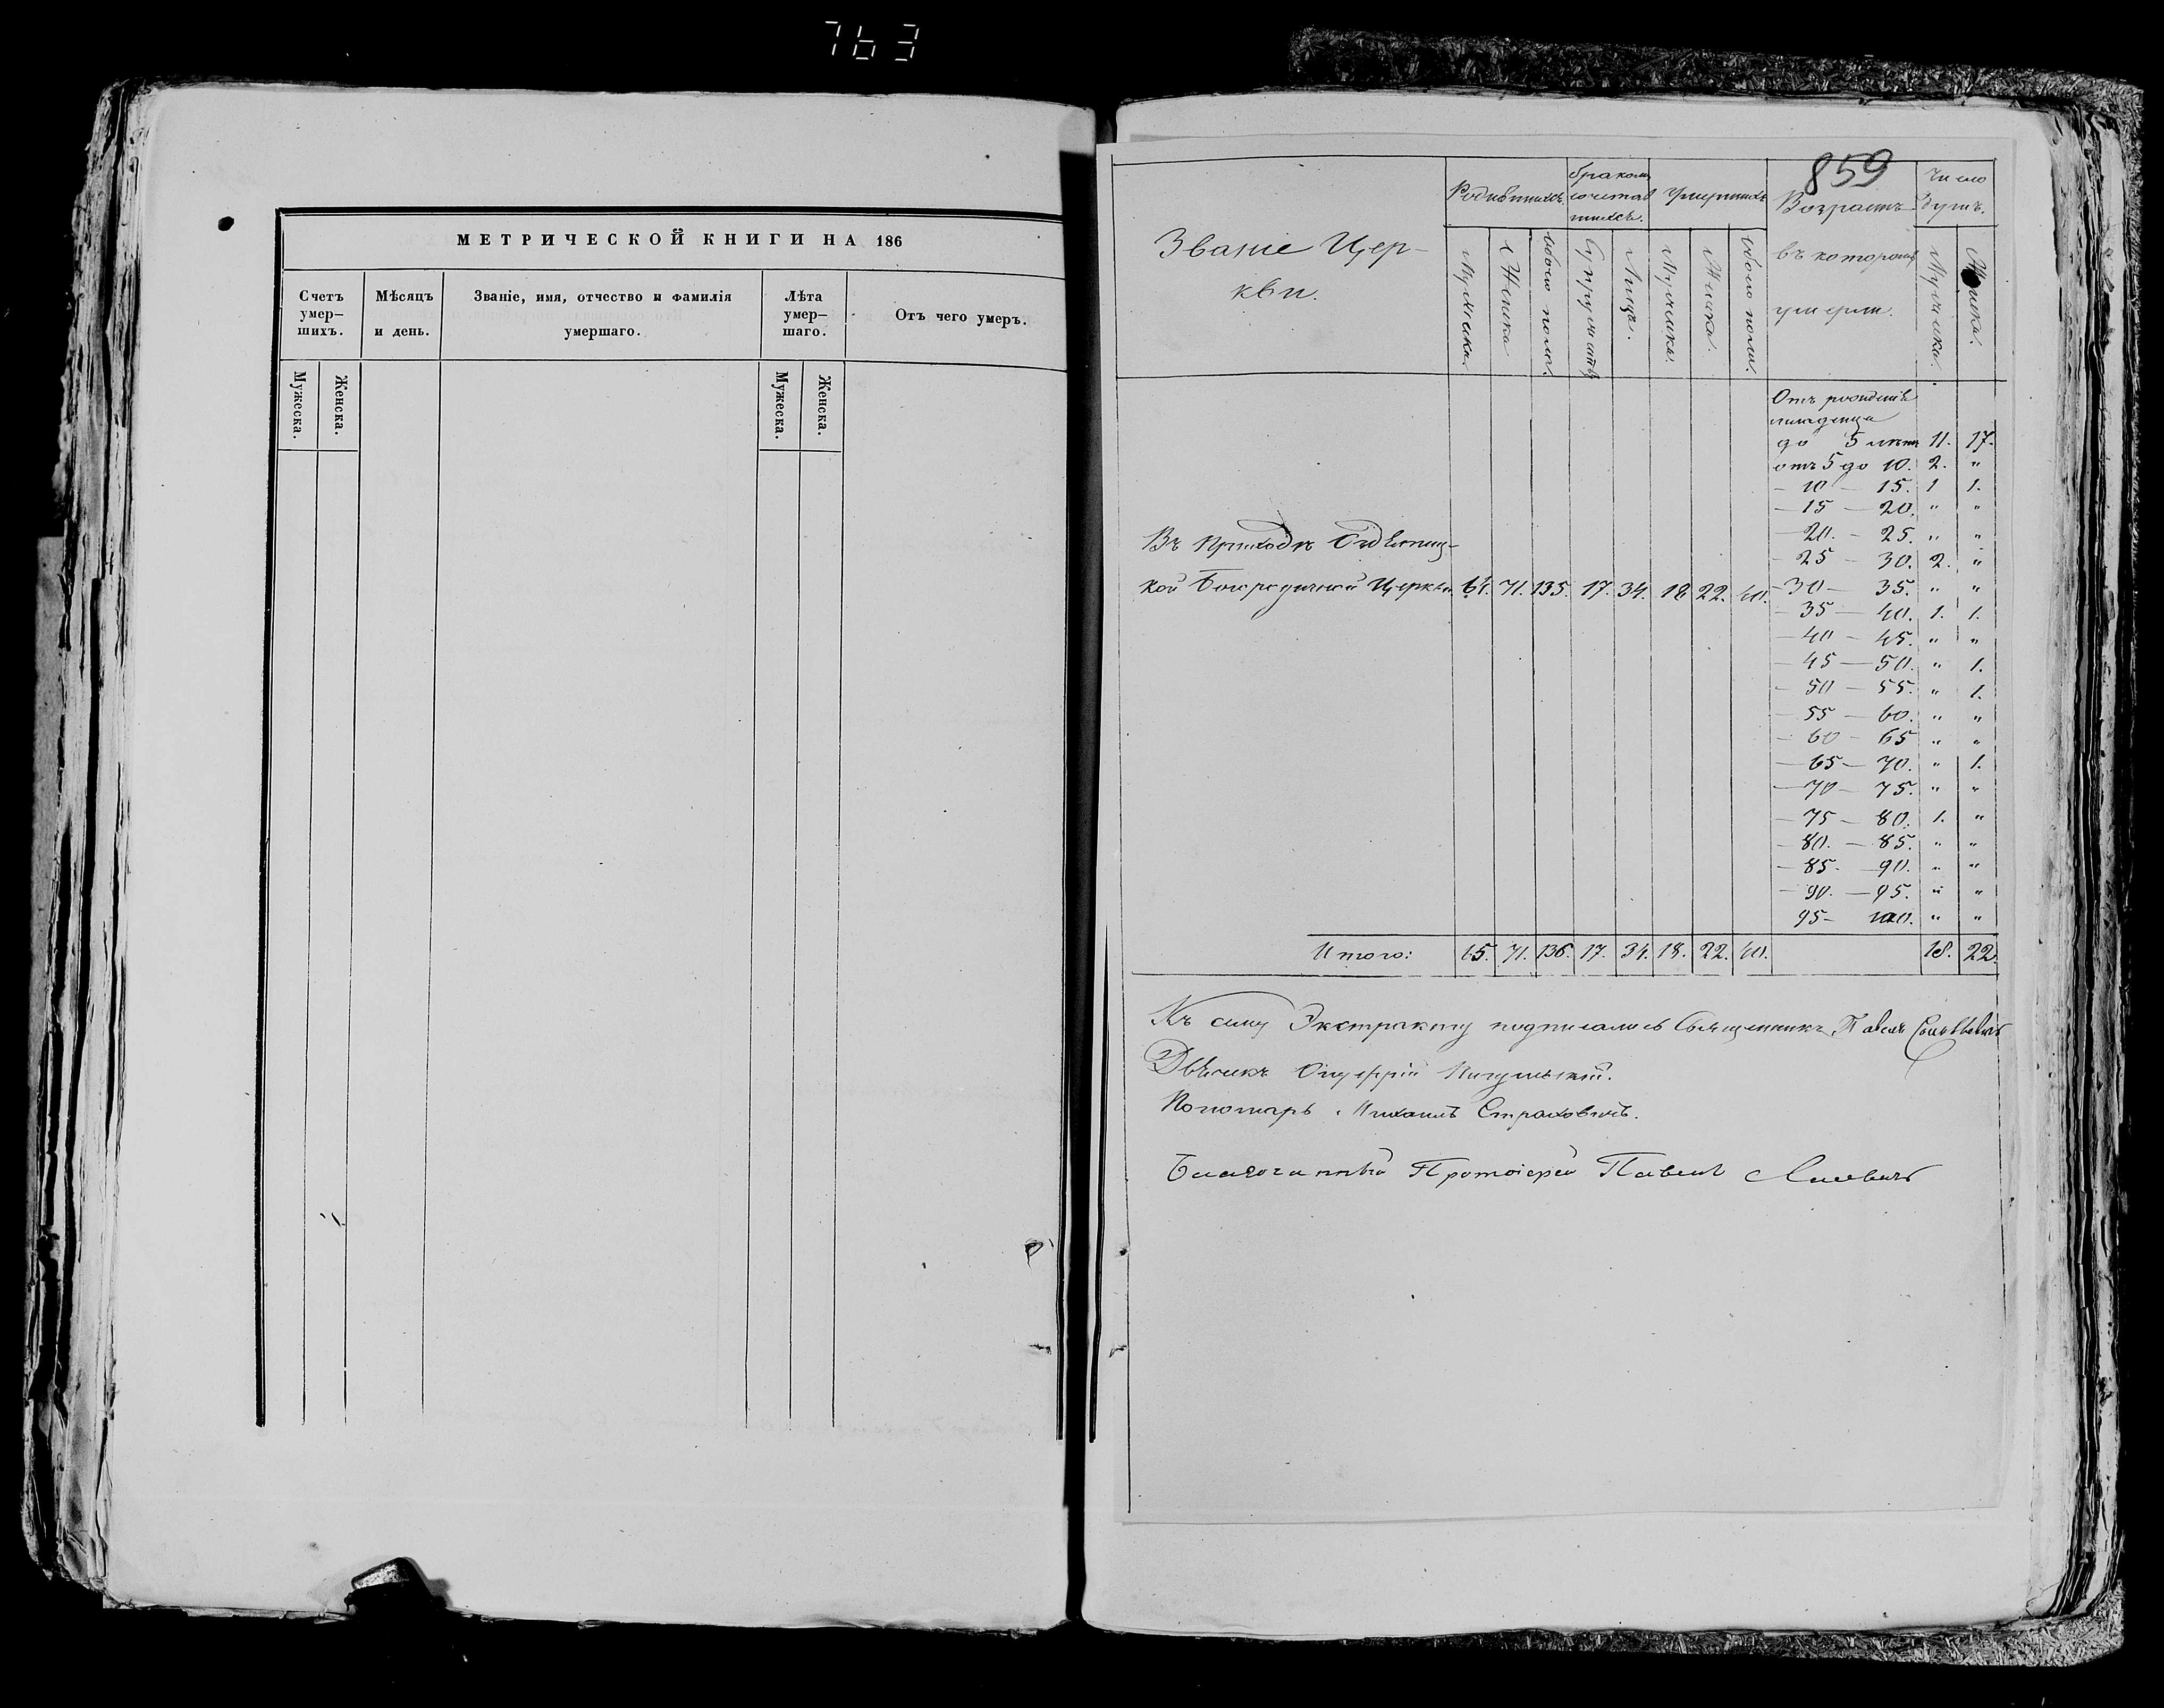 763
МЕТРИЧЕСКОЙ КНИГИ НА 186
Счетъ умер-шихъ.
Мѣсяцъ и день.
Званіе, имя, отчество и фамилія умершаго.
Лѣта умер-шаго.
Отъ чего умеръ.
Мужеска.
Женска.
Мужеска.
Женска.
859
Званіе Цер-
кви.
Родившихся
бракомъ
сочетав
шихся.
Умершихъ
Возрастъ
въ которомъ
умерли.
Число
душъ.
Мужеска.
Женска
обоего пола.
Супружествъ
Лицъ.
Мужеска.
Женска.
обоего пола.
Мужеска.
Женска.
Отъ рожденія
младенца
до 5 лѣтъ 11. 17.
отъ 5 до 10. 2. "
— 10 — 15. 1 1.
— 15 — 20. " "
— 20. — 25. " "
— 25 — 30. 2. "
Въ приходѣ
кой Богородичной Церкви. 64. 71. 135. 17. 34. 18 22. 40. — 30 — 35. " "
— 35 — 40. 1. 1.
— 40 — 45. " "
— 45 — 50. " 1.
— 50 — 55. " 1.
— 55 — 60. " "
— 60 — 65 " "
— 65 — 70. " 1.
— 70 — 75. " "
— 75 — 80. 1. "
— 80. — 85. " "
— 85. — 90. " "
— 90. — 95. " "
95 — 100. " "
Итого: 65. 71. 136. 17. 34. 18. 22. 40. 18. 22.
Къ сему Экстракту подписались Священникъ Павелъ
Дьячекъ Онуфрій
Пономарь Михаилъ Страховичъ.
Благочинный Протоіерей Павелъ